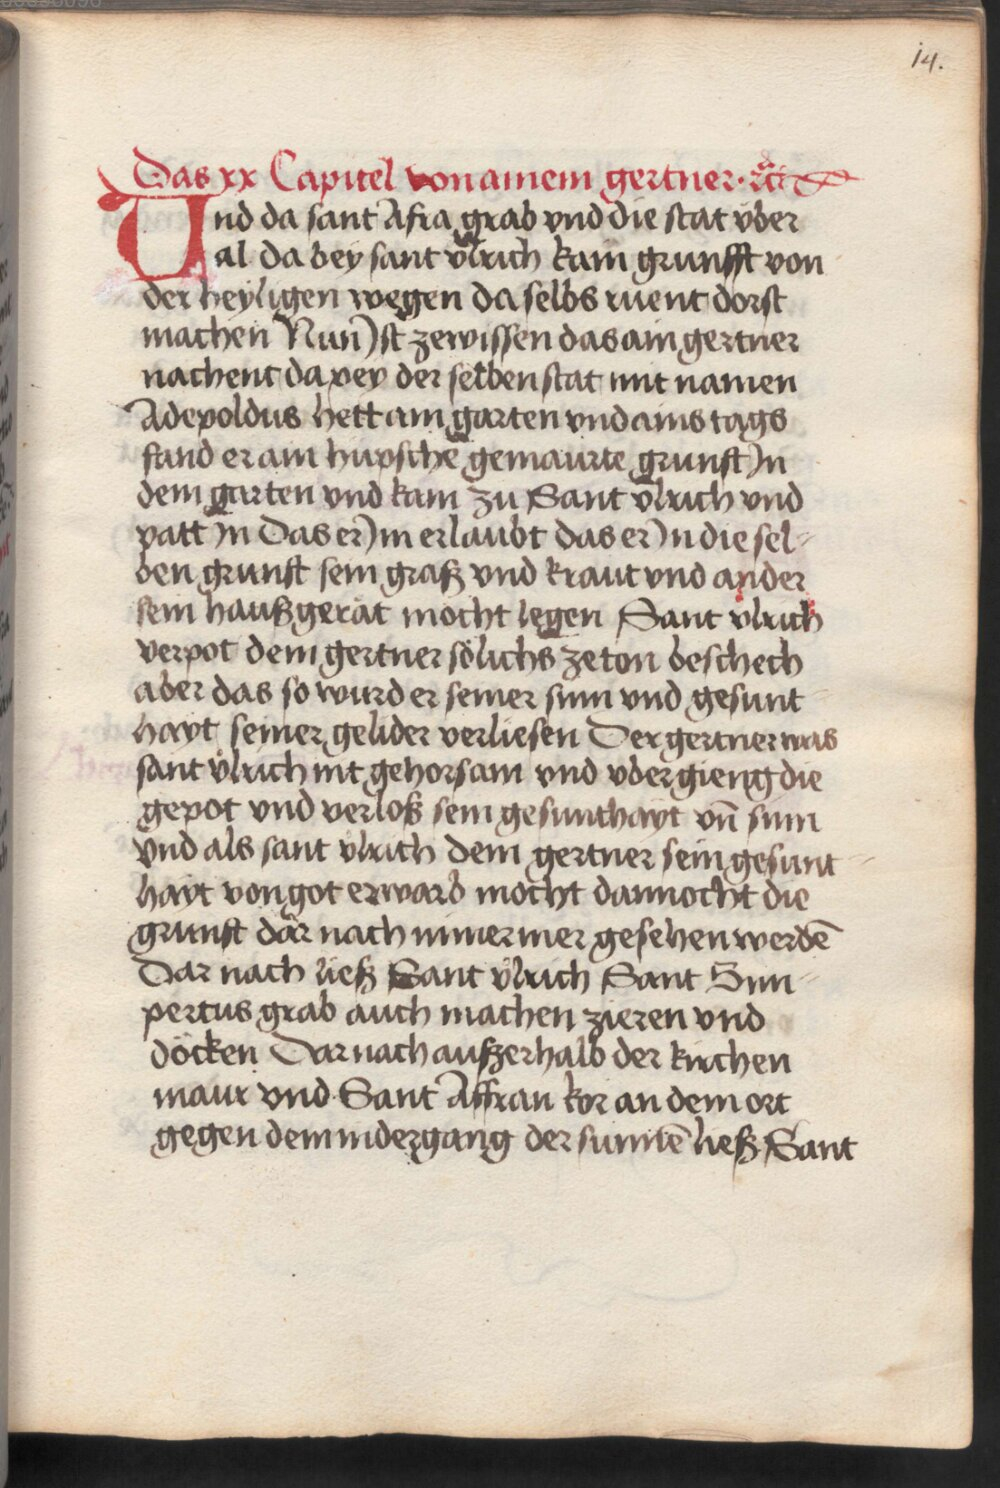 14.
Das xx Capitel von ainem gertner ·
Und da sant Afra grab vnd die stat vber
al da bey sant vlrich kain grunfft von
der heyligen wegen da selbs ruent dorst
machen Nun Ist zewissen das ain gertner
nachent da pey der selben stat mit namen
Adepoldus hett ain garten vnd ains tags
fand er ain hupsche gemaurte grunft In
dem garten vnd kam zu Sant vlrich vnd
patt In Das er Im erlaubt das er In die sel-
ben grunft sein graß vnd kraut vnd ander
sein haußgerat mocht legen Sant vlrich
verpot dem gertner sölichs zeton beschech
aber das so wurd er seiner sinn vnd gesunt-
hayt seiner gelider verliesen Der gertner was
sant vlrich nit gehorsam vnd vber gieng die
gepot vnd verloß sein gesunthayt vn̄ sinn
Vnd als sant vlrich dem gertner sein gesunt-
hayt von got erwarb mocht dannocht die
grunft dar nach nimer mer gesehen werdē
Dar nach ließ Sant vlrich Sant Sim-
pertus grab auch machen zieren vnd
döcken Dar nach außerhalb der kirchen
maur vnd Sant Affran kor an dem ort
gegen dem nidergang der sunnē ließ Sant